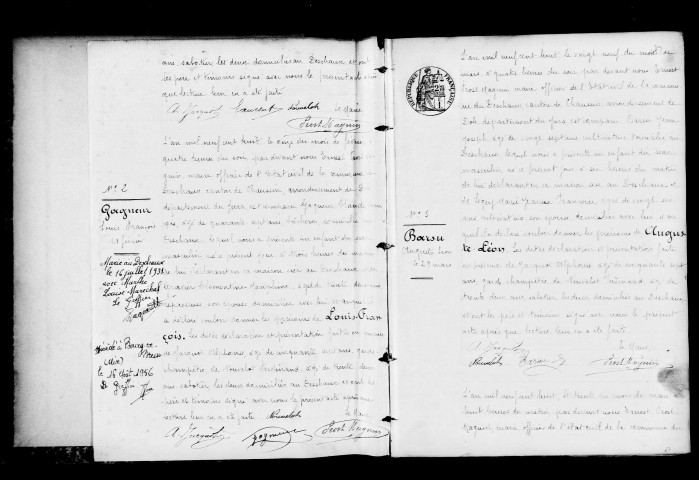 ans, sabotier les deux domiciliés au Deschaux et ont
les père et témoins signé avec nous le présent acte après
que lecture leur en a été faite
A. Jacquot Nouvelot Le Maire
Prost Maguin
L'an mil neuf cent huit le onze du mois de février
quatre heures du soir par devant nous Ernest Prost
Maguin, maire officier de l'état civil de la commune
Deschaux canton de Chaussin arrondissement de Dole
département du Jura est comparu Gagneur Claude
âgé de quarante ans domicilié au
Deschaux lequel nous a présenté un enfant du sexe
masculin né ce présent jour à heures du matin
de lui déclarant en sa maison sise au Deschaux et de
Clémentine âgée de
son épouse domiciliée avec lui et auquel il
a déclaré vouloir donner les prénoms de Louis-Fran
çois. Les dites déclaration et présentation faites en présence
de Jacquot Alphonse âgé de cinquante sept ans, garde
champêtre, de Nouvelot Ferdinand, âgé de trente deux
ans sabotier les deux domiciliés au Deschaux et ont les
père et témoins signé avec nous le présent acte après que
lecture leur en a été faite. Nouvelot Le Maire
A. Jacquot Gagneur Prost Maguin
N° 2
Gagneur
Louis François
11 février
Marié au Deschaux
le 16 juillet 1931
avec Marthe
Louise Maréchal
Le Greffier
Décédé à Bourg-en-
Bresse
(Ain)
le 18 Août 1956
Le Greffier
RÉPUBLIQUE FRANÇAISE
L'an mil neuf cent huit le vingt neuf du mois de
mars à quatre heures du soir par devant nous Ernest
Prost Maguin maire officier de l'état civil de la commune
du Deschaux canton de Chaussin arrondissement de
Dole département du Jura est comparu Barsu Jean
Joseph âgé de vingt sept ans cultivateur domicilié au
Deschaux lequel nous a présenté un enfant du sexe
masculin né ce présent jour à six heures du matin
de lui déclarant en sa maison sise au Deschaux et
de Marie Jeanne Françoise âgée de vingt six
ans son épouse domiciliée avec lui et au
quel il a déclaré vouloir donner les prénoms de Augus
te-Léon. Les dites déclaration et présentation faites
en présence de Jacquot Alphonse âgé de cinquante sept
ans, garde champêtre, de Nouvelot Ferdinand âgé de
trente deux ans sabotier les deux domiciliés au Deschaux
et ont le père et témoins signé avec nous le présent
acte après que lecture leur en a été faite
A. Jacquot Le Maire
Nouvelot Barsu Prost Maguin
N° 3
Barsu
Auguste Léon
le 29 mars
L'an mil neuf cent huit le trente du mois de mars
huit heures du matin par devant nous Ernest Prost
Maguin, maire officier de l'état civil de la commune du